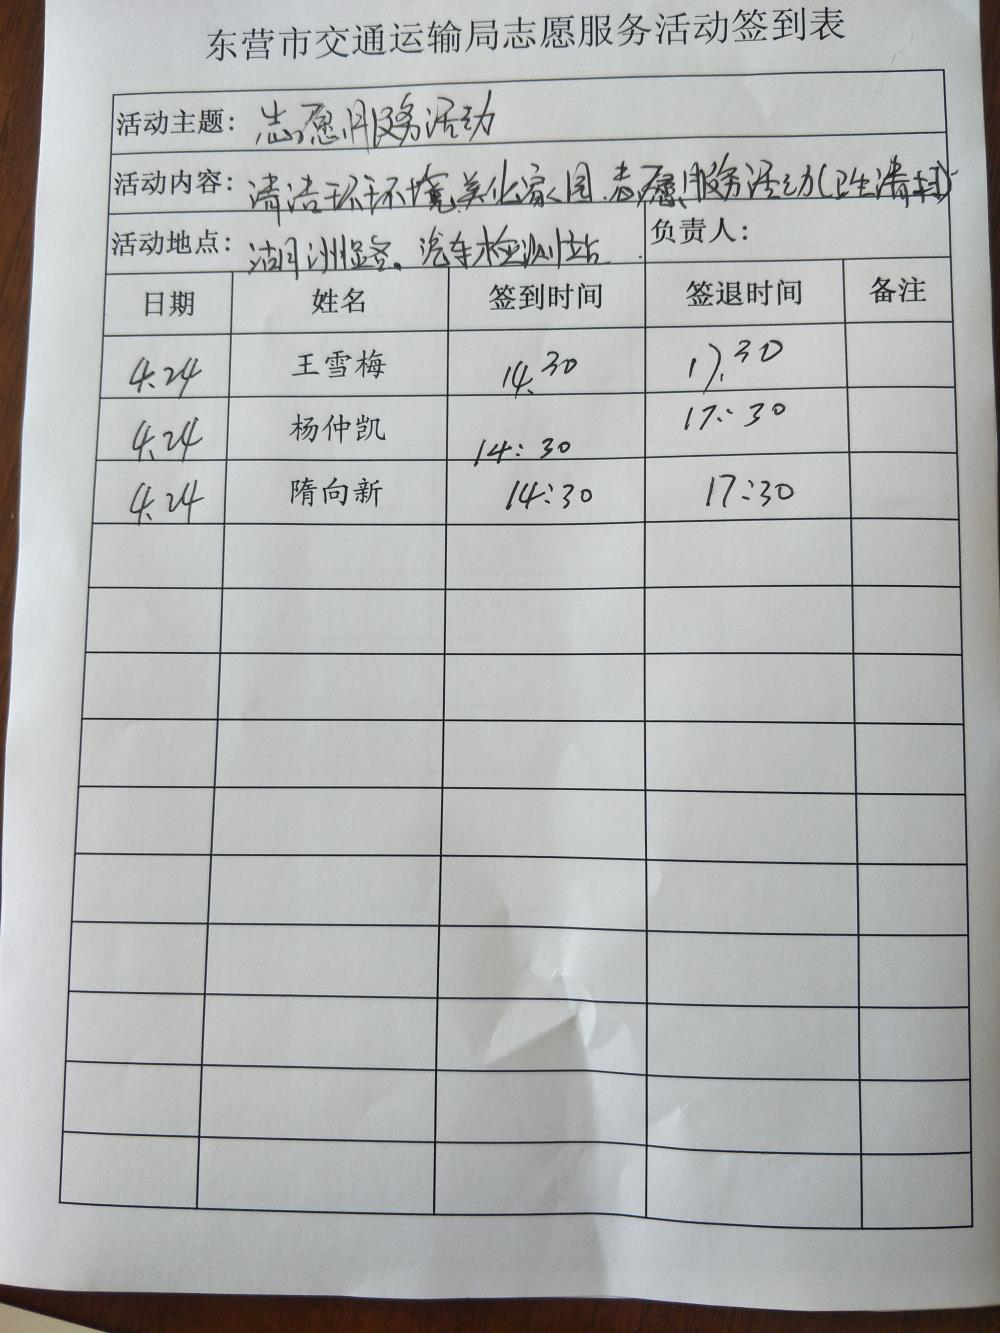 东营市交通运输局志愿服务活动签到表
活动主题: 志愿服务活动
活动内容: 清洁环境,美化家园.志愿服务活动(卫生清扫)
活动地点: 汽车检测站. 负责人:
日期 姓名 签到时间 签退时间 备注
4.24 王雪梅 14.30 17.30
4.24 杨仲凯 14:30 17:30
4.24 隋向新 14:30 17:30